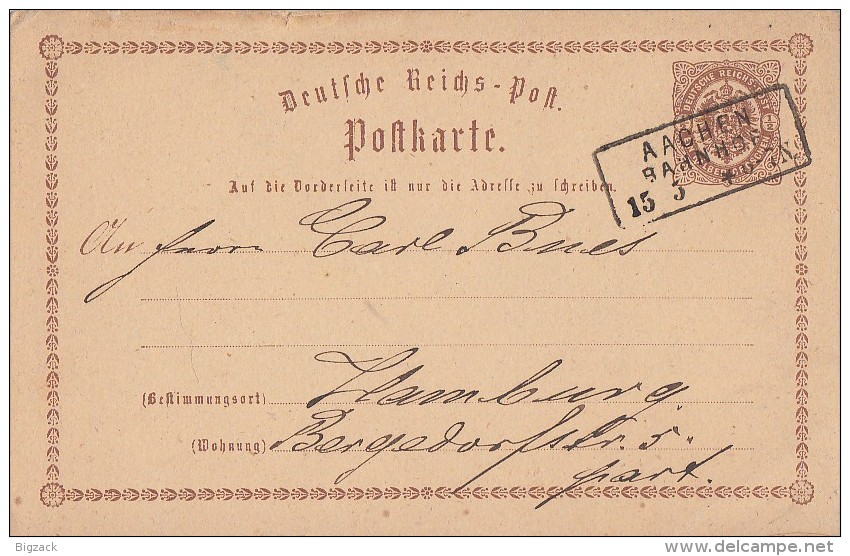 Deutsche Reichs-Post.
Postkarte.
Auf die Vorderseite ist nur die Adresse zu schreiben.
DEUTSCHE REICHSPOST
AACHEN
BAHNHOF
15 3 * * N
An Herrn Carl Bues
(Bestimmungsort) Hamburg
(Wohnung) Bergedorfstr. 5.
part.
Bigzack
www.delcampe.net